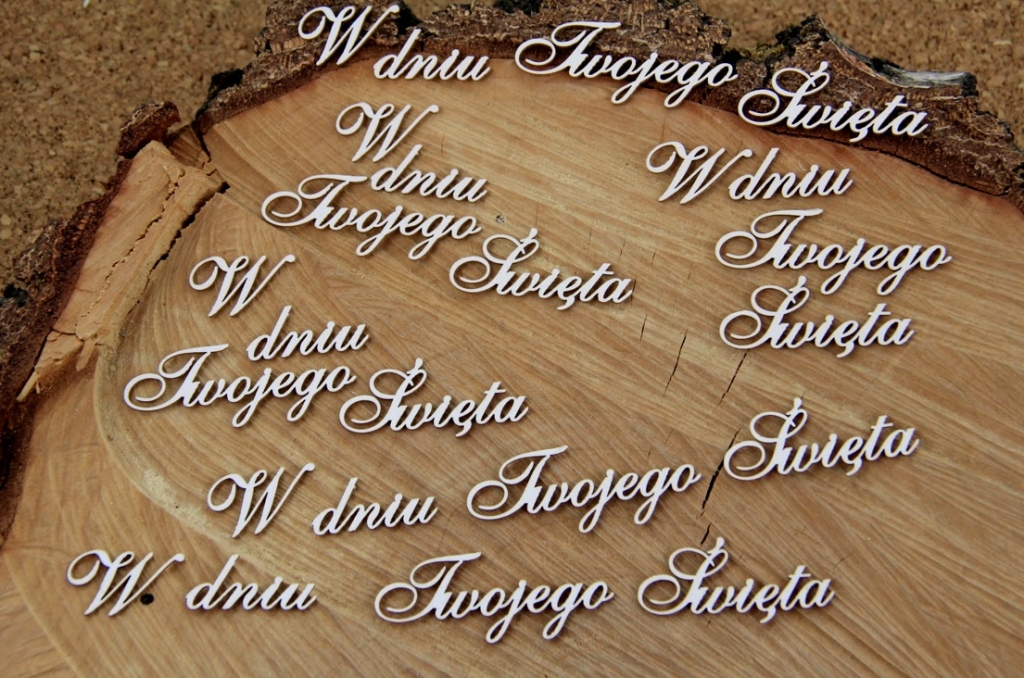 W dniu Twojego Święta
W
dniu
Twojego Święta
W dniu
Twojego
Święta
W
dniu
Twojego Święta
W dniu Twojego Święta
W dniu Twojego Święta